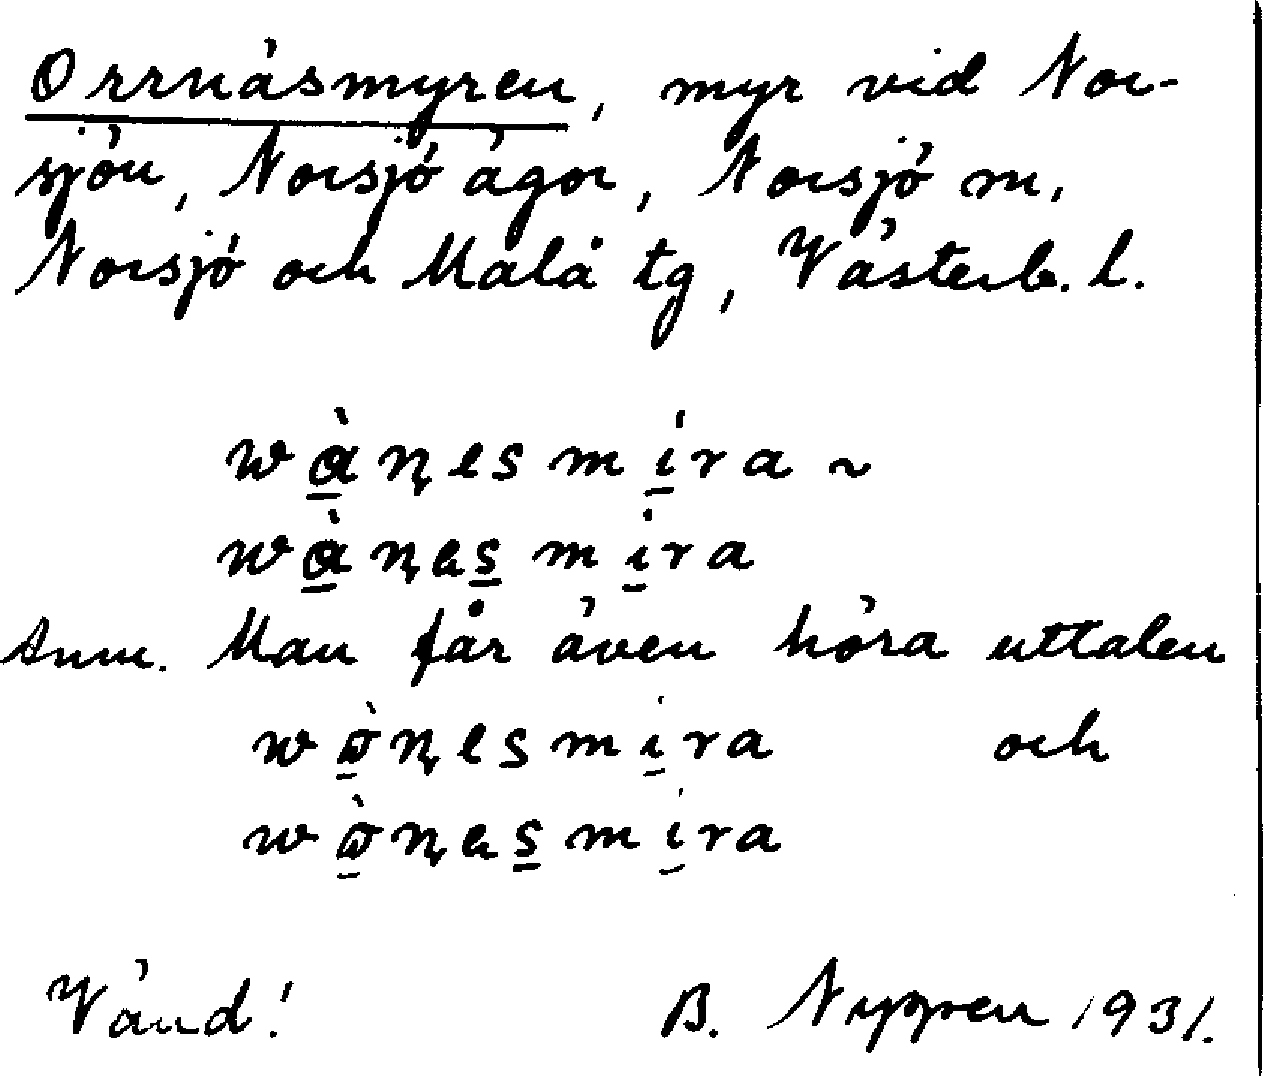 Orrnäsmyren, myr vid Nor-
sjön, Norsjö ägor, Norsjö sn,
Norsjö och Malå tg, Västerb. l.
wàn̨esmíra ~
wàn̨as̲míra
Anm. Man får även höra uttalen
wòn̨esmíra och
wòn̨as̲míra
Vänd! B. Nygren 1931.